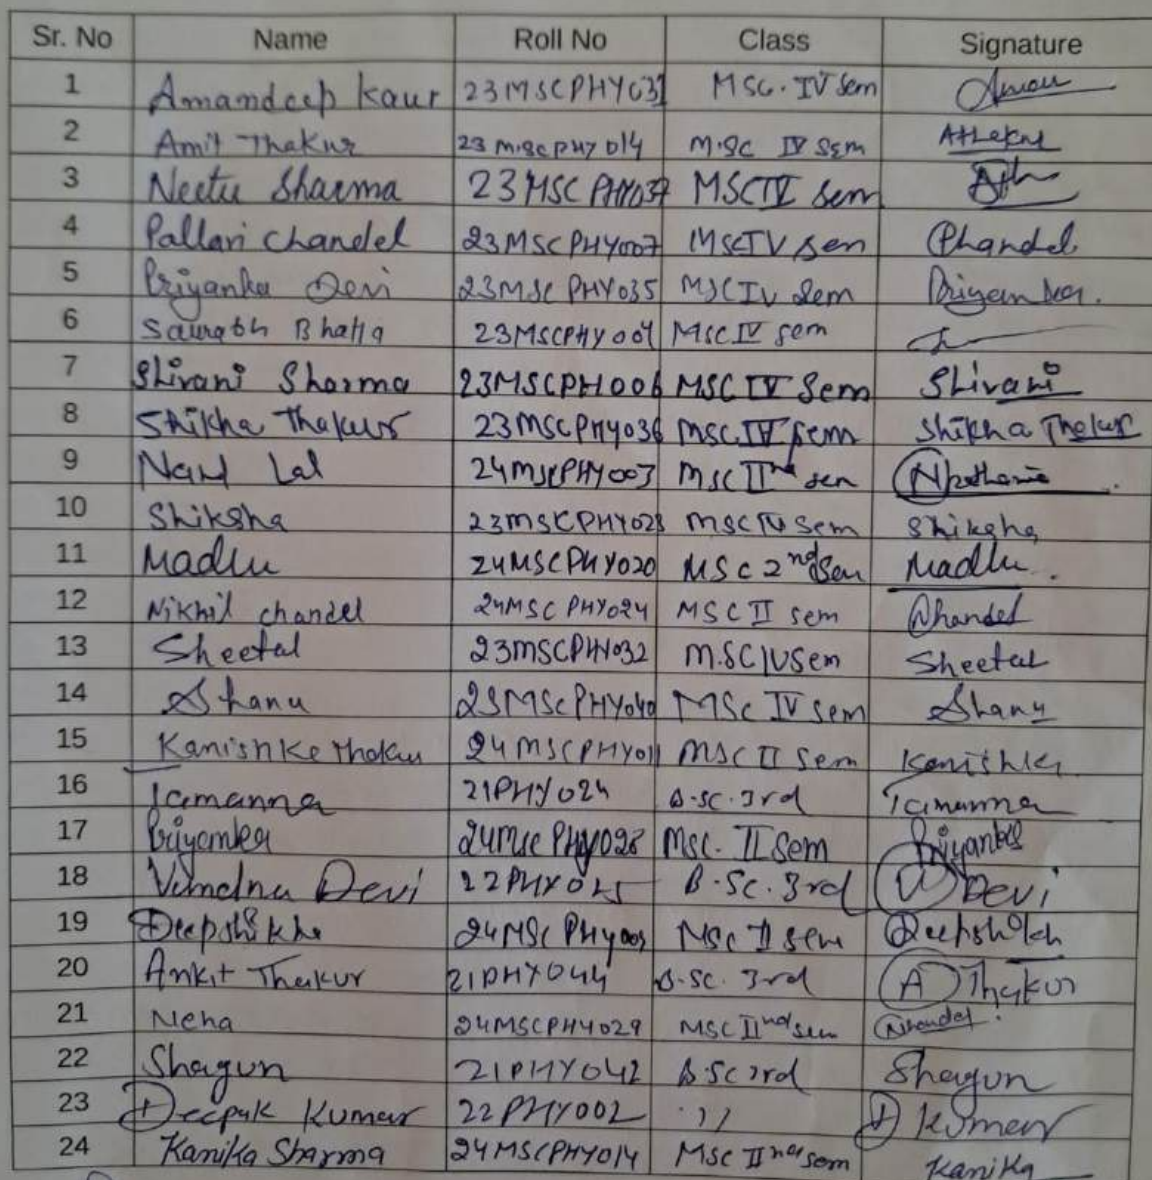 Sr. No Name Roll No Class Signature
1 Amandeep Kaur 23MSCPHY031 MSc. IV Sem Aman
2 Amit Thakur 23 M.Sc PHY 014 M.Sc IV Sem AThakur
3 Neetu Sharma 23 MSC PHY037 MSC IV Sem
4 Pallavi Chandel 23MSCPHY007 MSc IV Sem Pchandel
5 Priyanka Devi 23MSc PHY035 MSC IV Sem Priyanka.
6 Saurabh Bhatia 23MSCPHY001 MSC IV sem
7 Shivani Sharma 23MSCPH006 MSC IV Sem Shivani
8 Shikha Thakur 23MSCPHY036 MSC IV sem Shikha Thakur
9 Nand Lal 24MSCPHY003 MSC IInd sem
10 Shiksha 23MSCPHY028 MSC IV Sem Shiksha
11 Madhu 24MSCPHY020 MSc 2nd Sem Madhu.
12 Nikhil chandel 24MSC PHY024 MSC II sem Nhandel
13 Sheetal 23MSCPHY032 M.SC IV Sem Sheetal
14 Shanu 23MSc PHY040 MSc IV sem Shanu
15 Kanishka Thakur 24MSCPHY011 MSC II Sem Kanishka
16 Tamanna 21PHY024 B.Sc. 3rd Tamanna
17 Priyanka 24MSc PHY028 Msc. II Sem Priyanka
18 Devi 22PHY025 B.Sc. 3rd V Devi
19 Deepshikha 24MSc PHY009 MSc II sem Deepshikh
20 Ankit Thakur 21PHY044 B.Sc. 3rd A Thakur
21 Neha 24MSCPHY029 MSC IInd sem Nhandel.
22 Shagun 21PHY042 B.Sc 3rd Shagun
23 Deepak Kumar 22PHY002 ,, D Kumar
24 Kanika Sharma 24MSCPHY014 MSc IInd sem Kanika